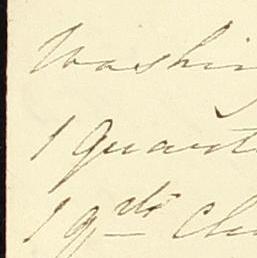 Washin
1 Quart
1 qrts Ch